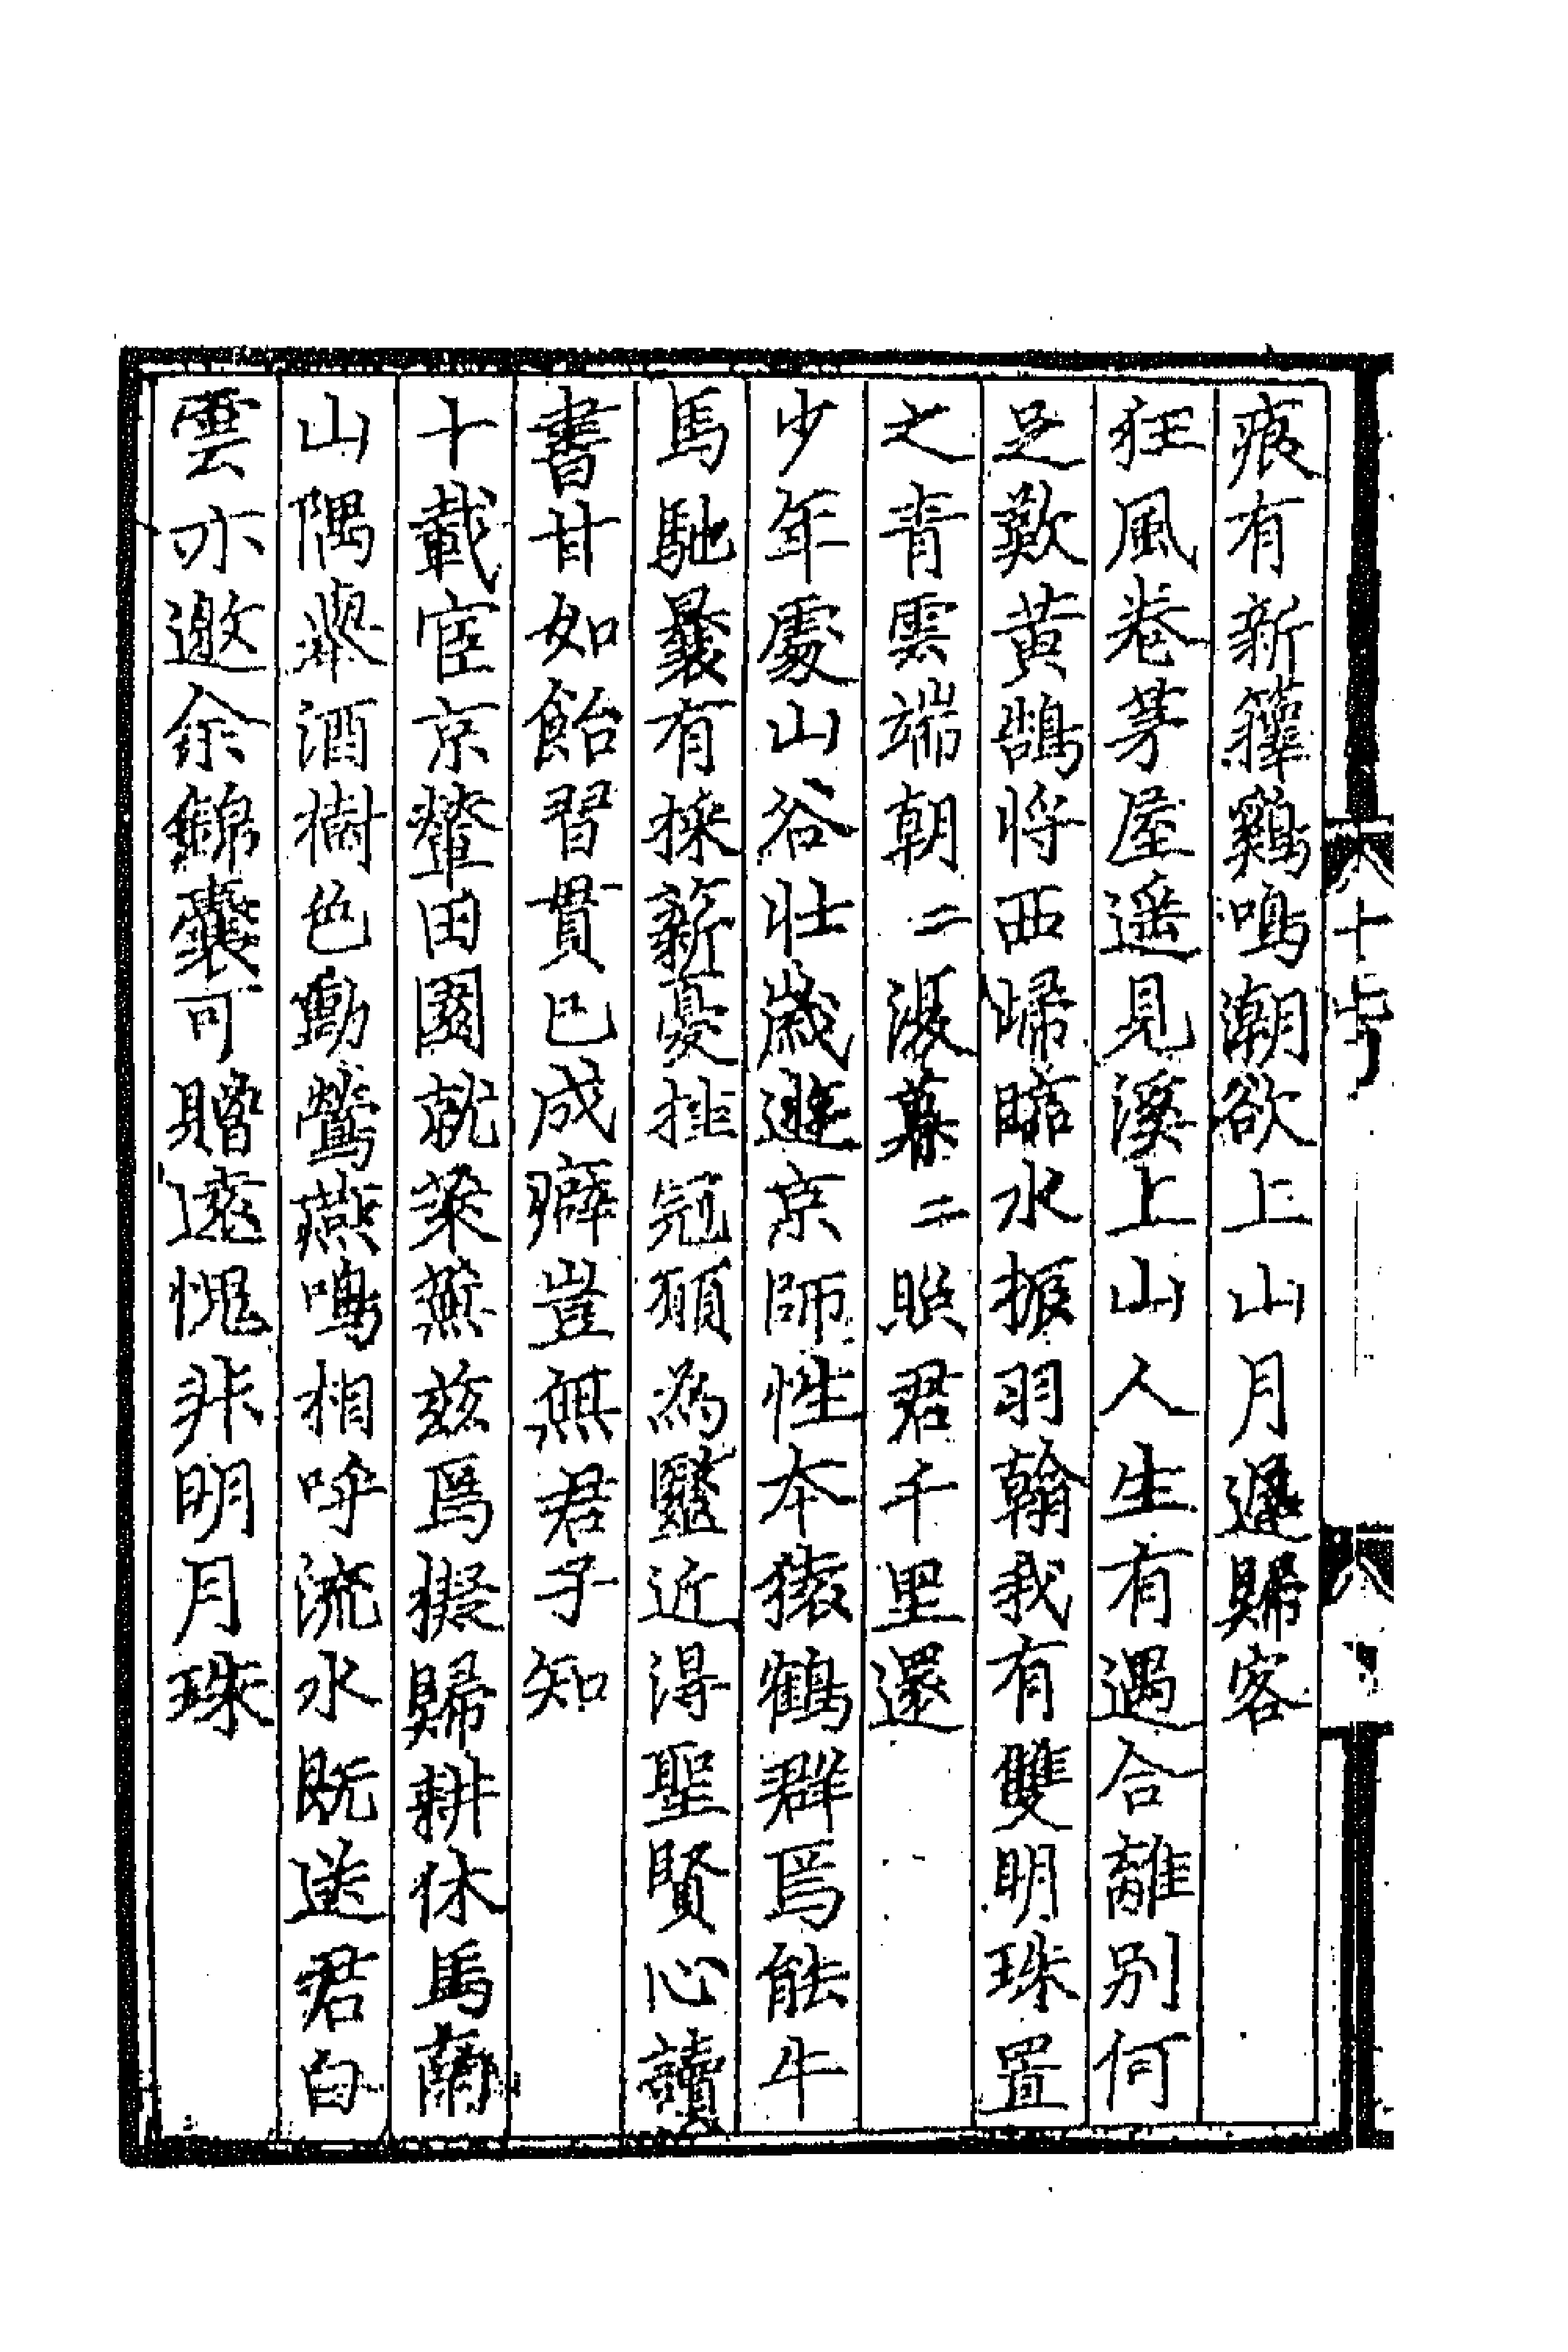 痕有新籜鷄鳴潮欲上山月遲歸客
狂風卷茅屋遥見溪上山人生有遇合離別何
足歎黄鵠将西歸臨水振羽翰我有雙明珠置
之青雲端朝二漫暮二照君千里還
少年處山谷壮歳逰京師性本猿鶴群焉能牛
馬馳曩有採薪憂挂冠願為毉近得聖賢心讀
書甘如飴習貫已成癖豈無君子知
十載宦京輦田園就榛蕪兹焉擬歸耕休馬蘭
山隅舉酒樹色動鶯燕鳴相呼流水既送君白
雲亦邀余錦囊可贈遠愧非明月珠